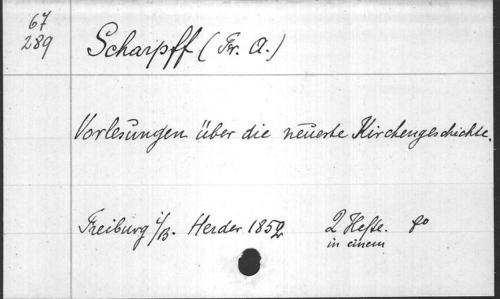 67
289
Scharpff (Fr. A.)
Vorlesungen über die neueste Kirchengeschichte.
Freiburg i/B. Herder 1852 2 Hefte. 8o
in einem